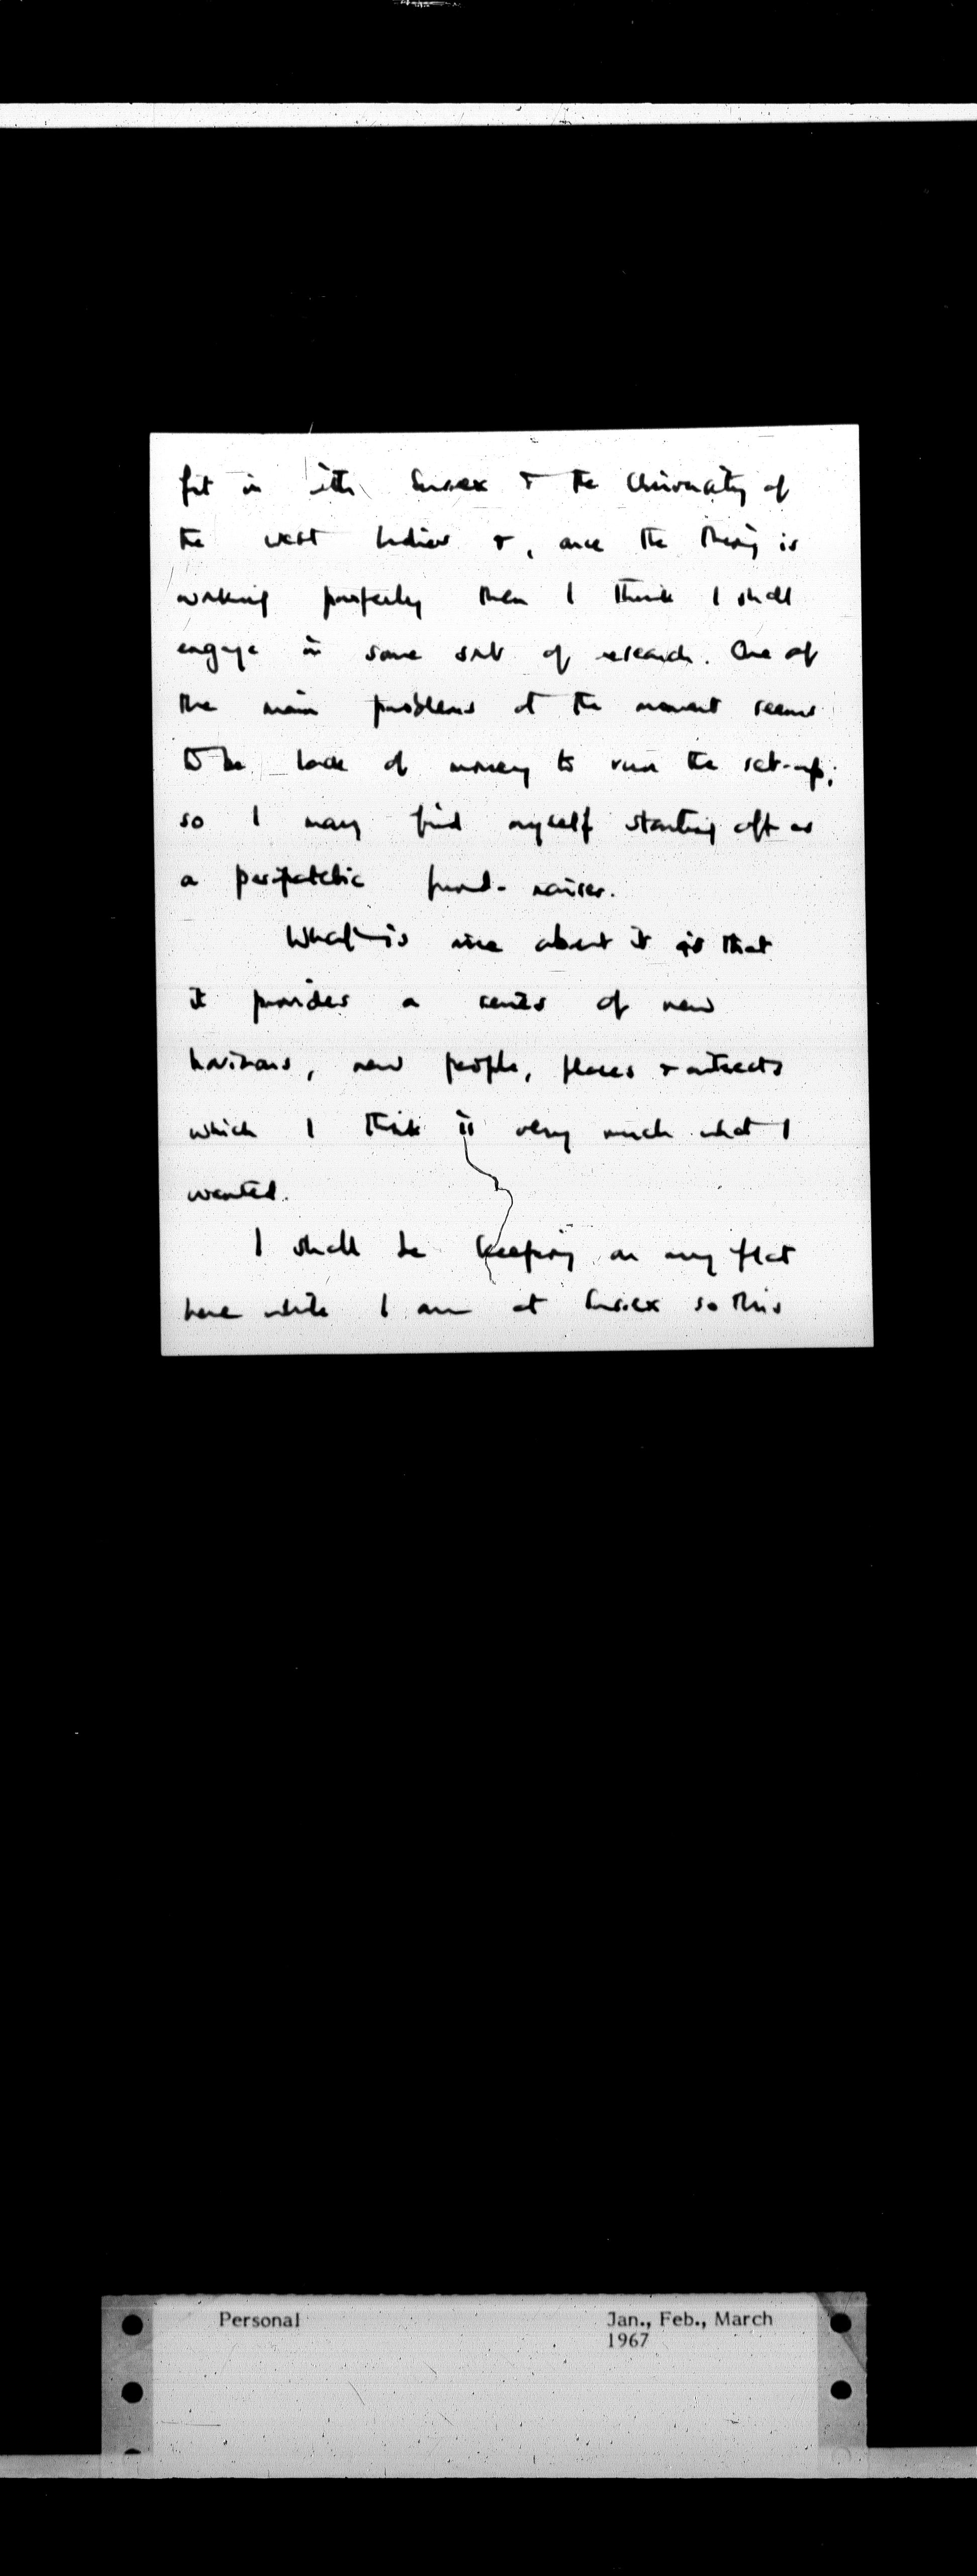 fit in with Sussex & the University of
the West Indies &, once the thing is
working properly then I think I shall
engage in some sort of research. One of
the main problems at the moment seems
to be lack of money to run the set-up;
so I may find myself starting off as
a peripatetic fund-raiser.
What is nice about it is that
it provides a series of new
horizons, new people, places & interests
which I think is very much what I
wanted.
I shall be keeping on my flat
here while I am at Sussex so this
Personal Jan., Feb., March
1967